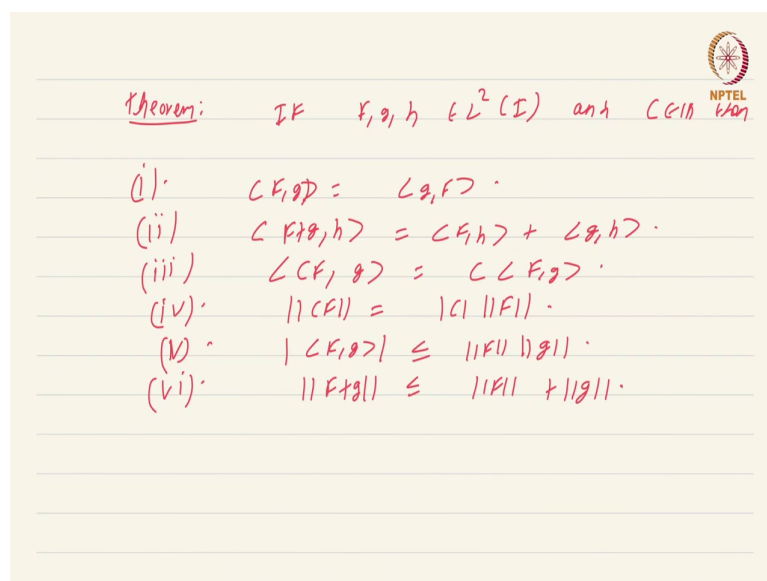 NPTEL
Theorem: If f, g, h ∈ L²(I) and c ∈ ℝ then
(i). <f, g> = <g, f>.
(ii) <f+g, h> = <f, h> + <g, h>.
(iii) <cf, g> = c <f, g>.
(iv). ||cf|| = |c| ||f||.
(v). |<f, g>| ≤ ||f|| ||g||.
(vi). ||f+g|| ≤ ||f|| + ||g||.